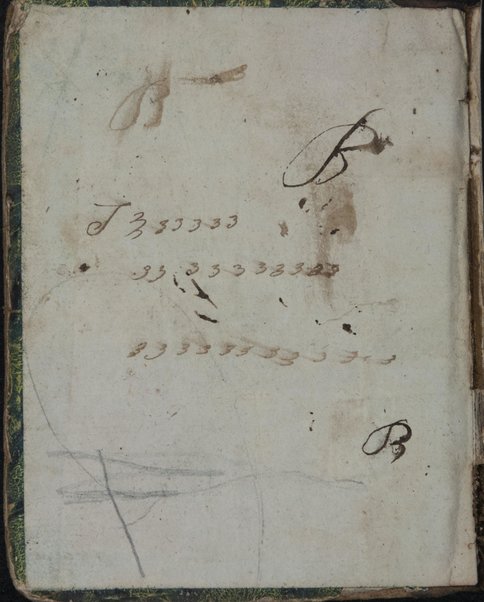 B
B
J 3 33333
33 33333333
33 33333333333
B